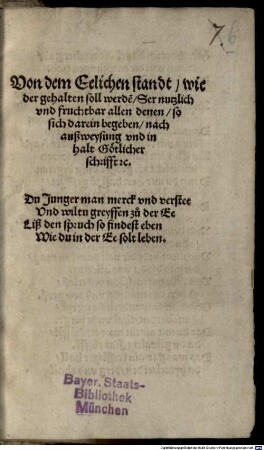 76
Von dem Eelichen standt / wie
der gehalten soll werdē / Ser nutzlich
vnd fruchtbar allen denen / so
sich darein begeben / nach
außweysung vnd in
halt Götlicher
schrifft ꝛc.
Du Junger man merck vnd verstee
Vnd wiltu greyffen zů der Ee
Liß den spruch so findest eben
Wie du in der Ee solt leben.
Bayer. Staats-
Bibliothek
München